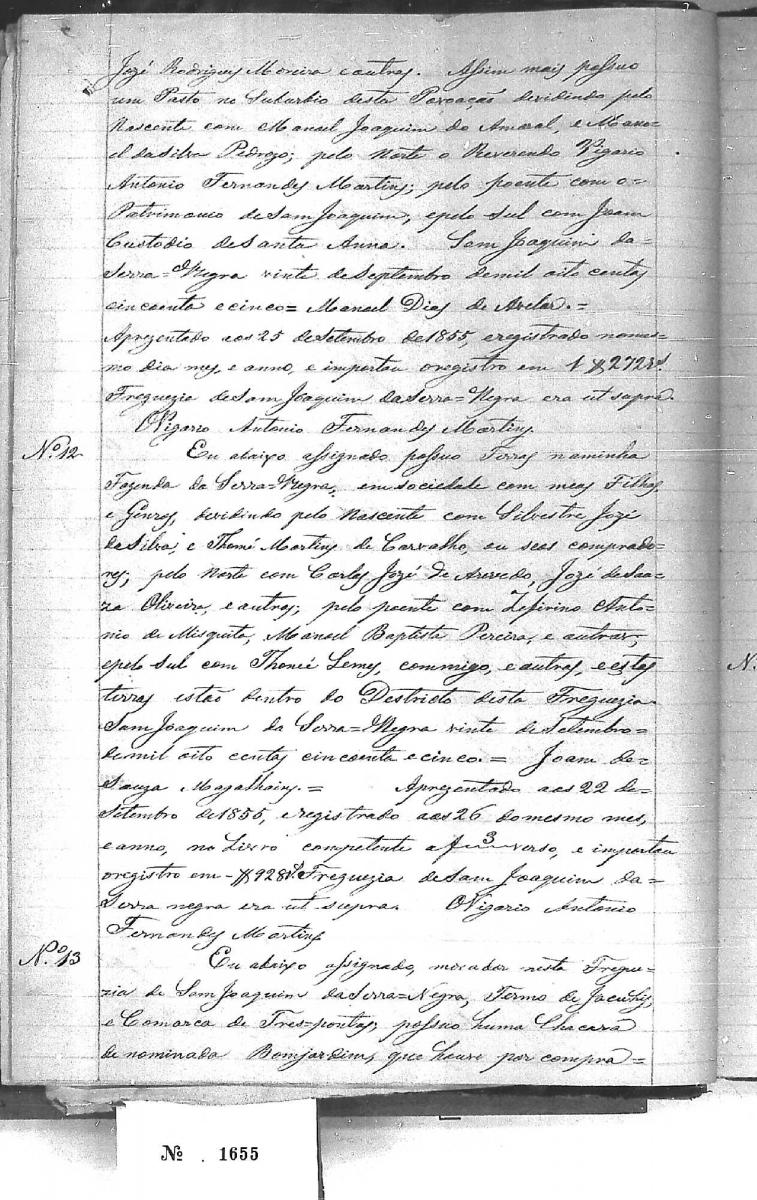 José Rodrigues Moreira e outros. Assim mais possuo
um Pasto no Suburbio desta Povoaçaõ devidindo pelo
Nascente com Manoel Joaquim do Amaral, e Mano-
el da Silva Pedrozo; pelo Norte o Reverendo Vigario
Antonio Fernandes Martins; pelo poente com o=
Patrimonio de Sam Joaquim; e pelo Sul com Joam
Custodio de Santa Anna. Sam Joaquim da=
Serra=Negra vinte de Septembro de mil oito centos
cincoenta e cinco= Manoel Dias de Avelar.=
Aprezentado aos 25 de Setembro de 1855, e registrado no mes-
mo dia mes, e anno, e importou o registro em 1$272rs.
Freguezia de Sam Joaquim da Serra=Negra era ut supra.
O Vigario Antonio Fernandes Martins
Nº 12 Eu abaixo assignado possuo Terras na minha
Fazenda da Serra=Negra, em sociedade com meos Filhos,
e Genros, devidindo pelo Nascente com Silvestre José
da Silva, e Thomé Martins de Carvalho, ou seos comprado-
res; pelo Norte com Carlos José de Azevedo, José de Sou-
za Oliveira, e outros; pelo poente com Zefirino Anto-
nio de Misquita, Manoel Baptista Pereira, e outros,
e pelo Sul com Thomé Lemes, commigo, e outros, e estas
terras estão dentro do Destricto desta Freguezia.
Sam Joaquim da Serra=Negra vinte de Setembro=
de mil oito centos cincoenta e cinco.= Joam de=
Souza Magalhains.= Aprezentado aos 22 de=
Setembro de 1855, e registrado aos 26 do mesmo mes,
e anno, no Livro competente a f 3 verso, e importou
o registro em -$928rs Freguezia de Sam Joaquim da=
Serra negra era ut supra. O Vigario Antonio
Fernandes Martins
Nº 13 Eu abaixo assignado, morador nesta Fregue-
zia de Sam Joaquim da Serra=Negra, Termo de Jacuhy,
e Comarca de Tres=pontas; possuo huma Chacara
denominada Bomjardim, que houve por compra=
N.
Nº . 1655